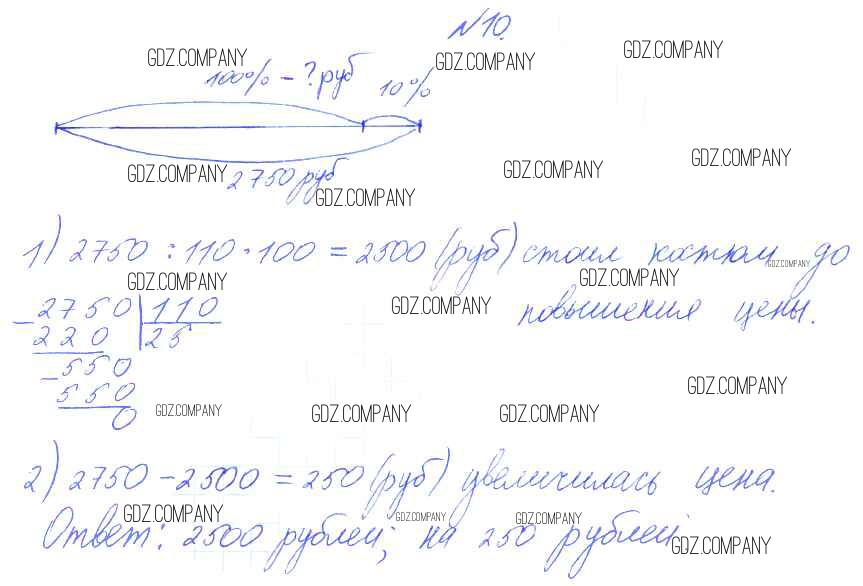 №10.
GDZ.COMPANY GDZ.COMPANY GDZ.COMPANY
100% - ? руб 10%
GDZ.COMPANY 2750 руб GDZ.COMPANY GDZ.COMPANY GDZ.COMPANY
1) 2750 : 110 · 100 = 2500 (руб) стоил костюм GDZ.COMPANY до
GDZ.COMPANY GDZ.COMPANY GDZ.COMPANY
повышения цены.
- 2750 | 110
220 25
- 550
550
0
GDZ.COMPANY GDZ.COMPANY GDZ.COMPANY GDZ.COMPANY
2) 2750 - 2500 = 250 (руб) увеличилась цена.
GDZ.COMPANY GDZ.COMPANY GDZ.COMPANY GDZ.COMPANY
Ответ: 2500 рублей; на 250 рублей